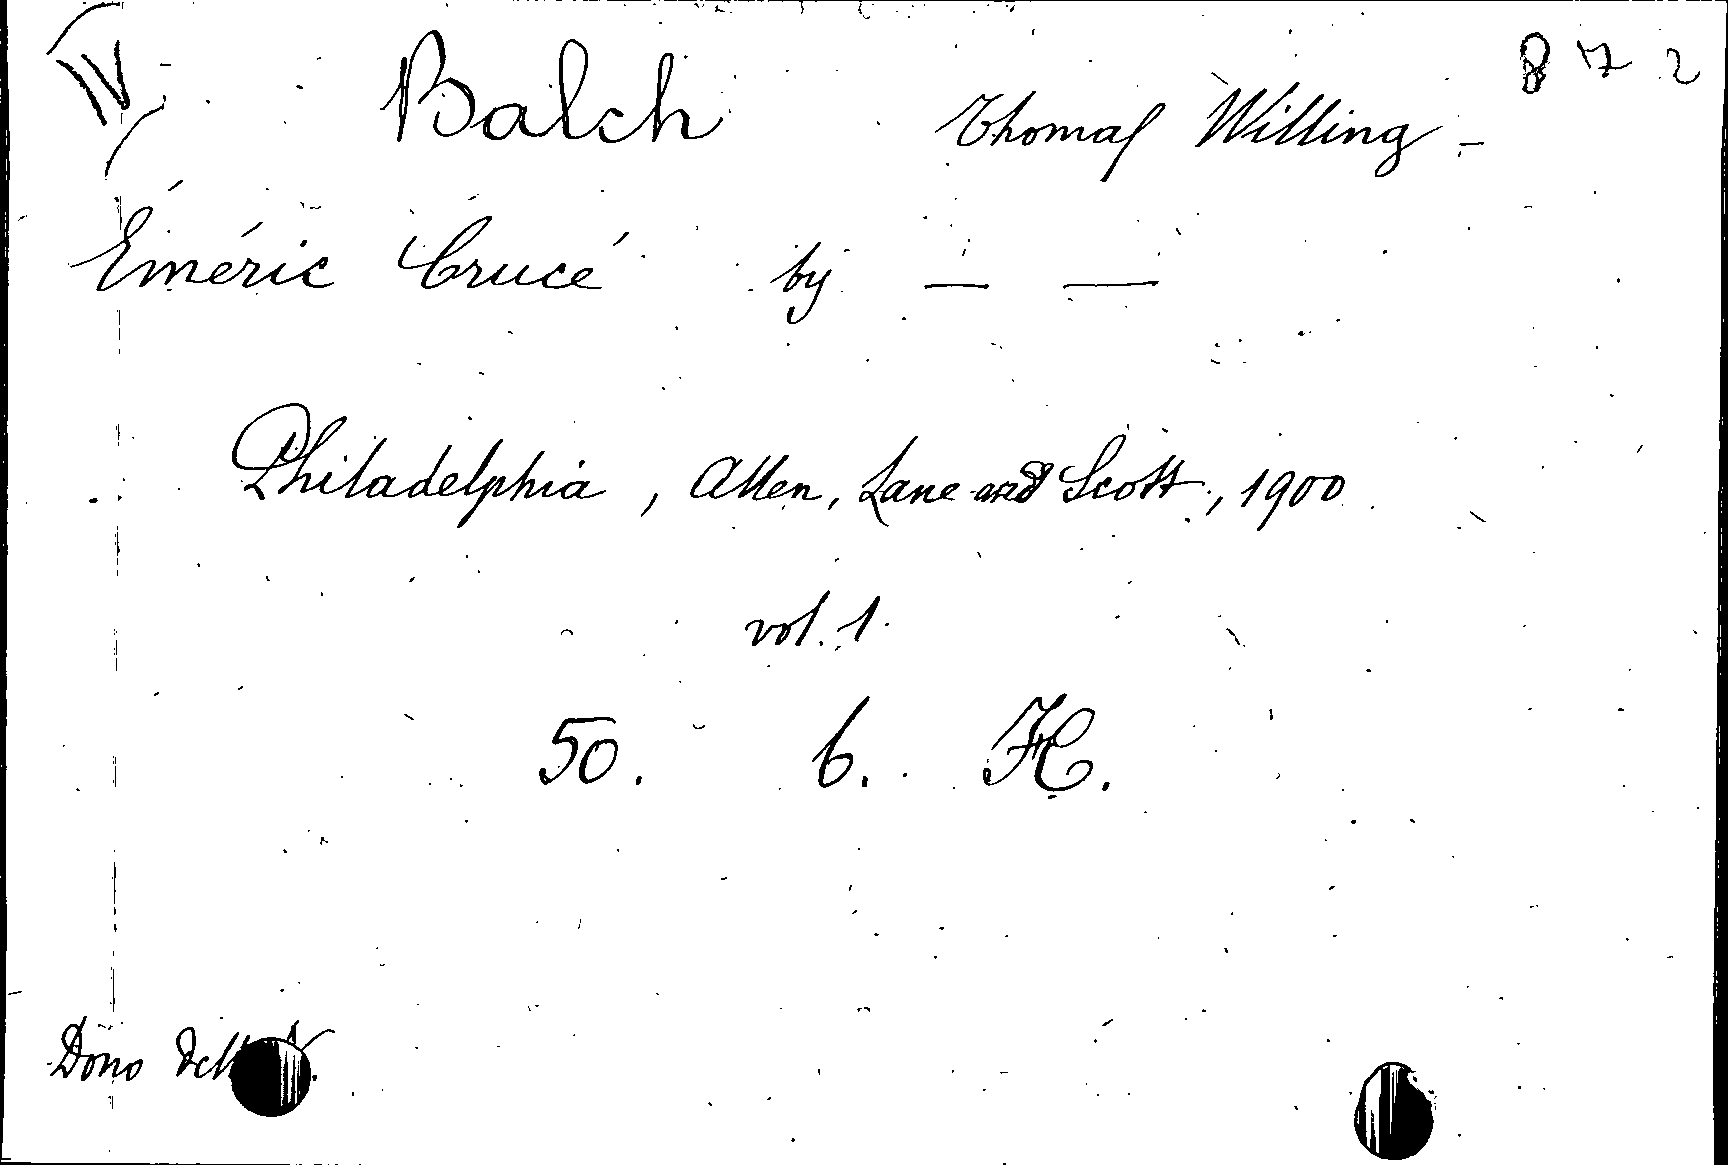 IV Balch Thomas Willing - 872
Éméric Crucé by — —
Philadelphia, Allen, Lane and Scott, 1900
vol. 1
50. 6. H.
Dono